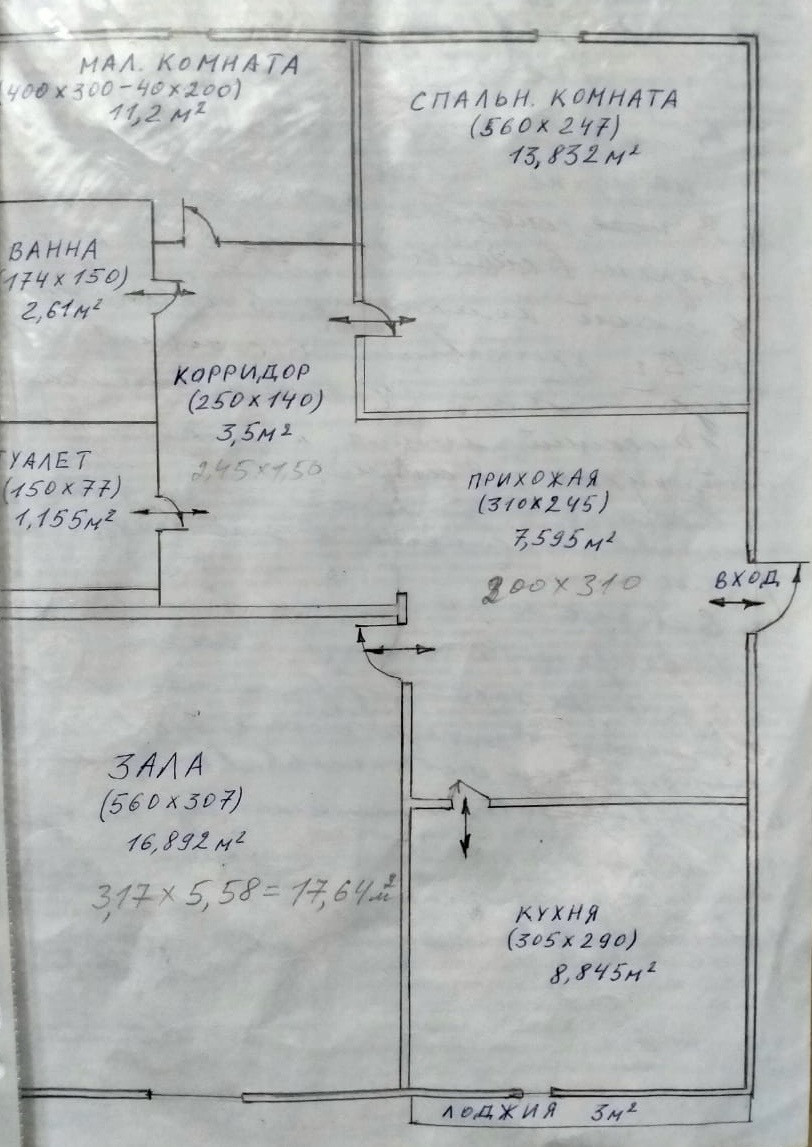 МАЛ. КОМНАТА
(400 х 300 - 40 х 200)
11,2 м²
СПАЛЬН. КОМНАТА
(560 х 247)
13,832 м²
ВАННА
(174 х 150)
2,61 м²
КОРРИДОР
(250 х 140)
3,5 м²
2,45 х 1,50
ТУАЛЕТ
(150 х 77)
1,155 м²
ПРИХОЖАЯ
(310 х 245)
7,595 м²
200 х 310
ВХОД
ЗАЛА
(560 х 307)
16,892 м²
3,17 х 5,58 = 17,64 м²
КУХНЯ
(305 х 290)
8,845 м²
ЛОДЖИЯ 3 м²